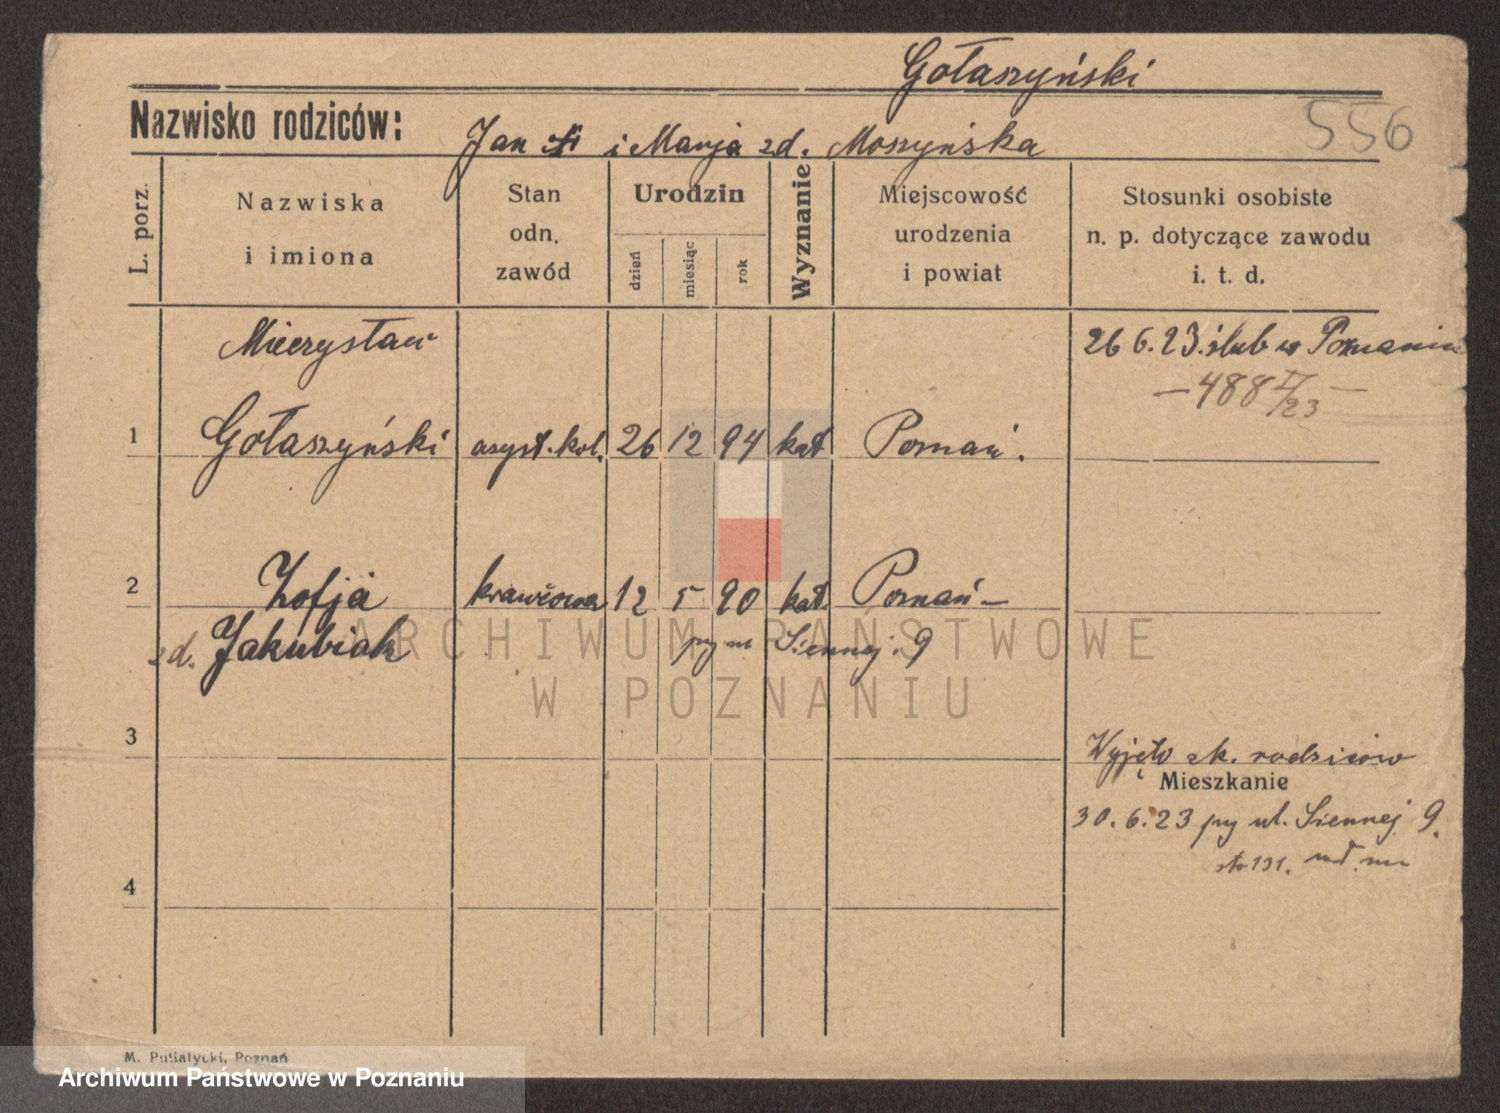 Gołaszyński
556
Nazwisko rodziców: Jan i Marja zd. Moszyńska
L. porz.
Nazwiska i imiona
Stan odn. zawód
Urodzin
dzień
miesiąc
rok
Wyznanie
Miejscowość urodzenia i powiat
Stosunki osobiste n. p. dotyczące zawodu i. t. d.
Mieczysław
26 6. 23. ślub w Poznaniu
— 488 II/23 —
1 Gołaszyński asyst. kol. 26 12 94 kat Poznań.
2 Zofja krawcowa 12 5 90 kat. Poznań —
zd. Jakubiak
przy ul. Siennej. 9
ARCHIWUM PAŃSTWOWE
W POZNANIU
3
Wyjęto z k. rodziców
Mieszkanie
30. 6. 23 przy ul. Siennej 9.
str 131.
4
M. Putiatycki, Poznań
Archiwum Państwowe w Poznaniu